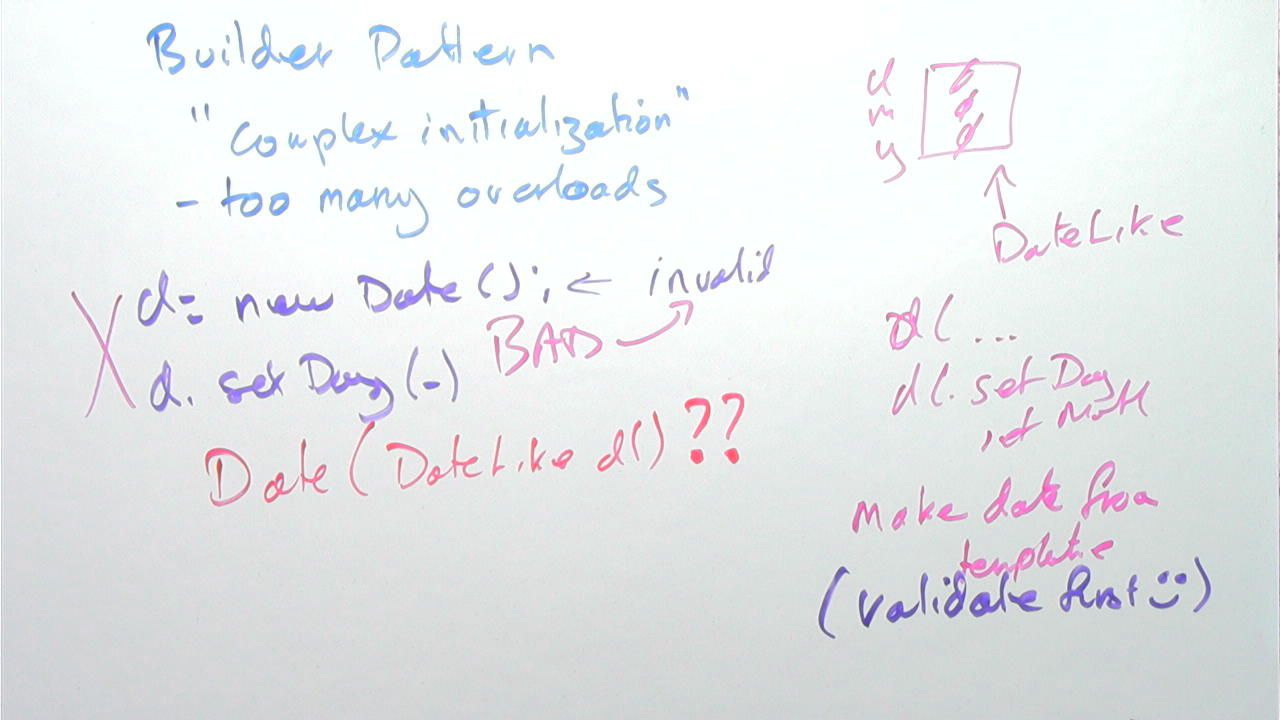 Builder Pattern
"complex initialization"
- too many overloads
d= new Date(); ← invalid
BAD
d. set Day(-)
Date(DateLike dl)??
d
m
y
DateLike
dl ...
dl. set Day
set Month
Make date from
template
(validate first ☺)